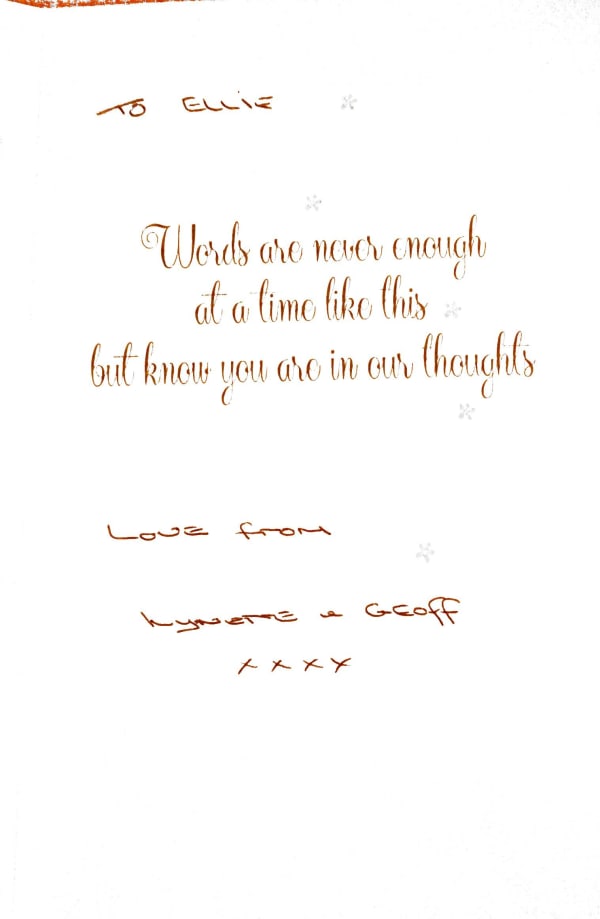 TO ELLIE
Words are never enough
at a time like this
but know you are in our thoughts
LOVE from
LYNETTE & GEOFF
xxxx